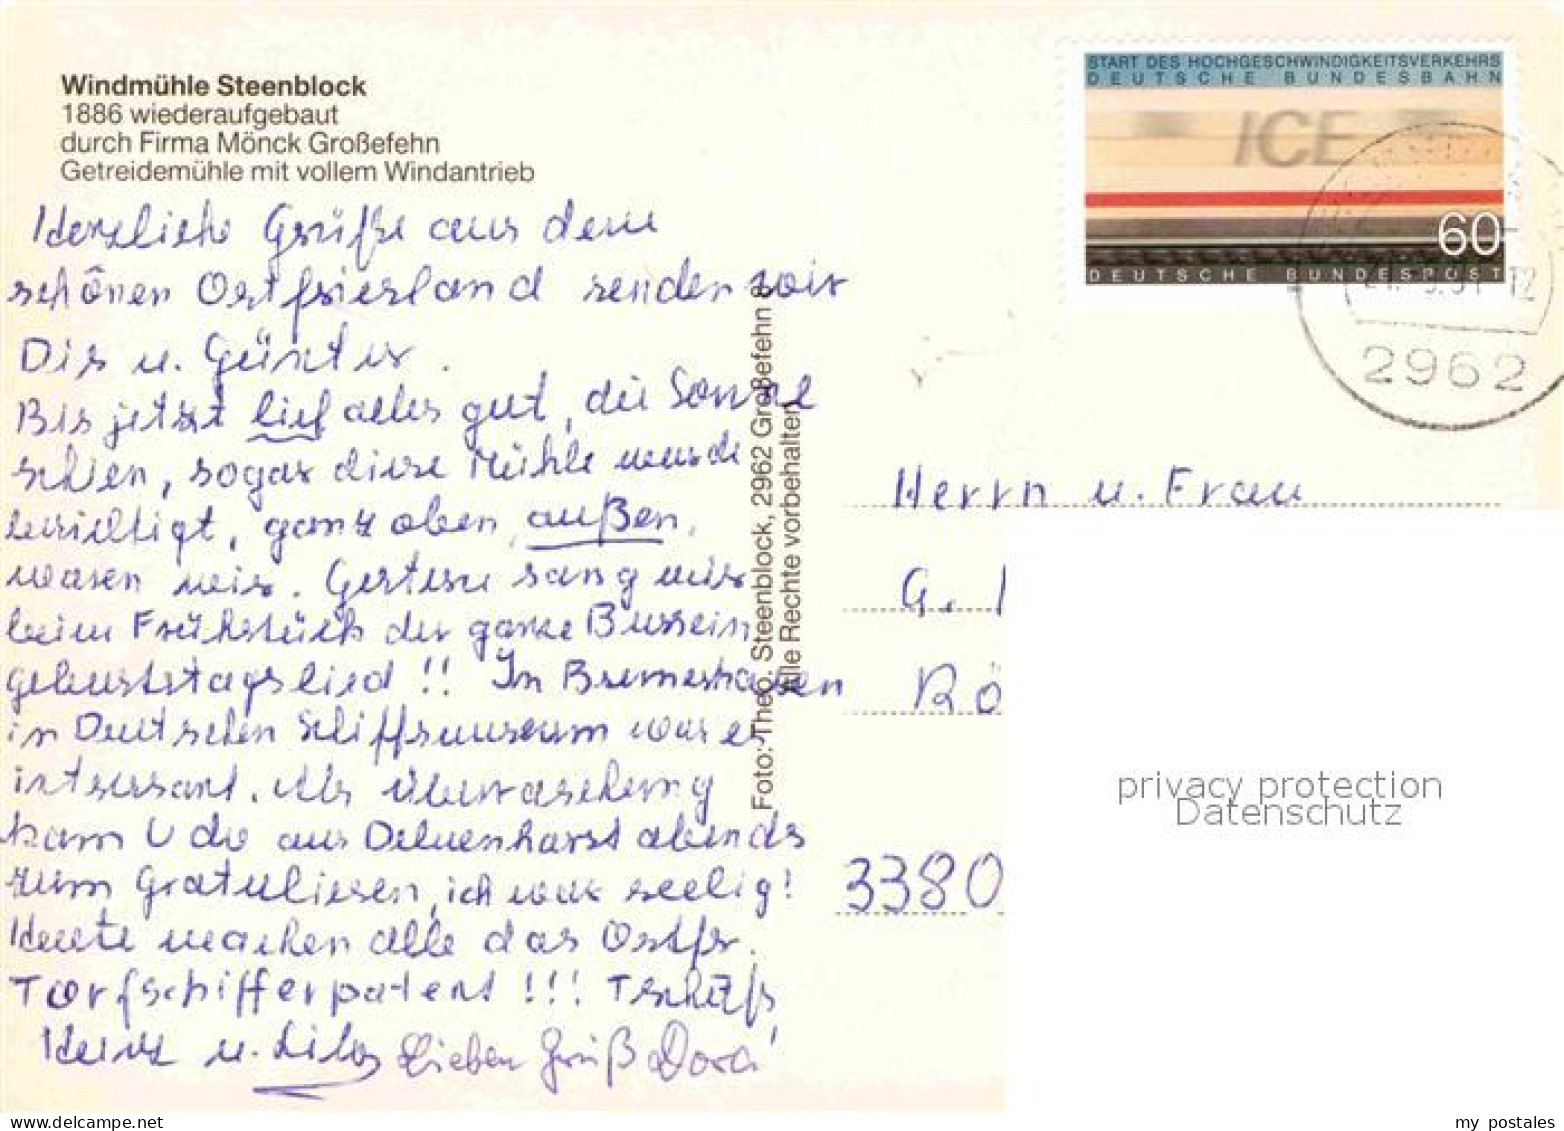 Windmühle Steenblock
1886 wiederaufgebaut
durch Firma Mönck Großefehn
Getreidemühle mit vollem Windantrieb
START DES HOCHGESCHWINDIGKEITSVERKEHRS
DEUTSCHE BUNDESBAHN
ICE
60
DEUTSCHE BUNDESPOST
12
2962
Herzliche Grüße aus dem
schönen Ostfriesland senden wir
Dir u. Günter.
Bis jetzt lief alles gut, die Sonne
schien, sogar diese Mühle wurde
besichtigt, ganz oben, außen,
waren wir. Gestern sang mir
beim Frühstück der ganze Bus ein
Geburtstagslied!! In Bremerhaven
im Deutschen Schiffsmuseum war es
interessant. Als Überraschung
kam Udo aus Delmenhorst abends
zum Gratulieren, ich war seelig!
Heute machen alle das Ostfr.
Torfschifferpatent!!! Tschüß
Heinz u. Lilo Lieben Gruß Dora
Foto: Theo. Steenblock, 2962 Großefehn
Alle Rechte vorbehalten
Herrn u. Frau
G.
3380
privacy protection
Datenschutz
my postales
delcampe.net